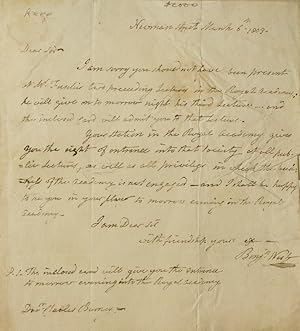 Newman Street March 6th. 1809.
Dear Sir
I am sorry you should not have been present
at Mr. Fuseli's two preceeding Lectures in the Royal Academy;
he will give on to morrow night his third Lecture... and
the inclosed card will admit you to that Lecture.
Your station in the Royal Academy gives
you the right of entrance into that Society, at all pub-
lic Lectures, as well as all privileges in which the
of the Academy is not engaged - and I shall be happy
to see you in your place to morrow evening in the Royal
Academy -
I am Dear Sir
with friendship yours &c
Benj. West
P.S. The inclosed card will give you the entrance
to morrow evening into the Royal Academy
Doctr. Charles Burney -